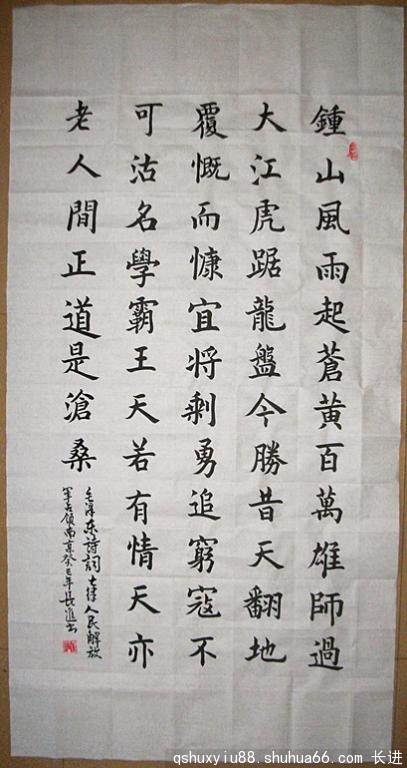 鍾山風雨起蒼黃百萬雄師過
大江虎踞龍盤今勝昔天翻地
覆慨而慷宜将剩勇追窮寇不
可沽名學霸王天若有情天亦
老人間正道是滄桑
毛澤东詩詞七律人民解放
軍占領南京癸巳年长進书
qshuxyiu88.shuhua66.com 长进